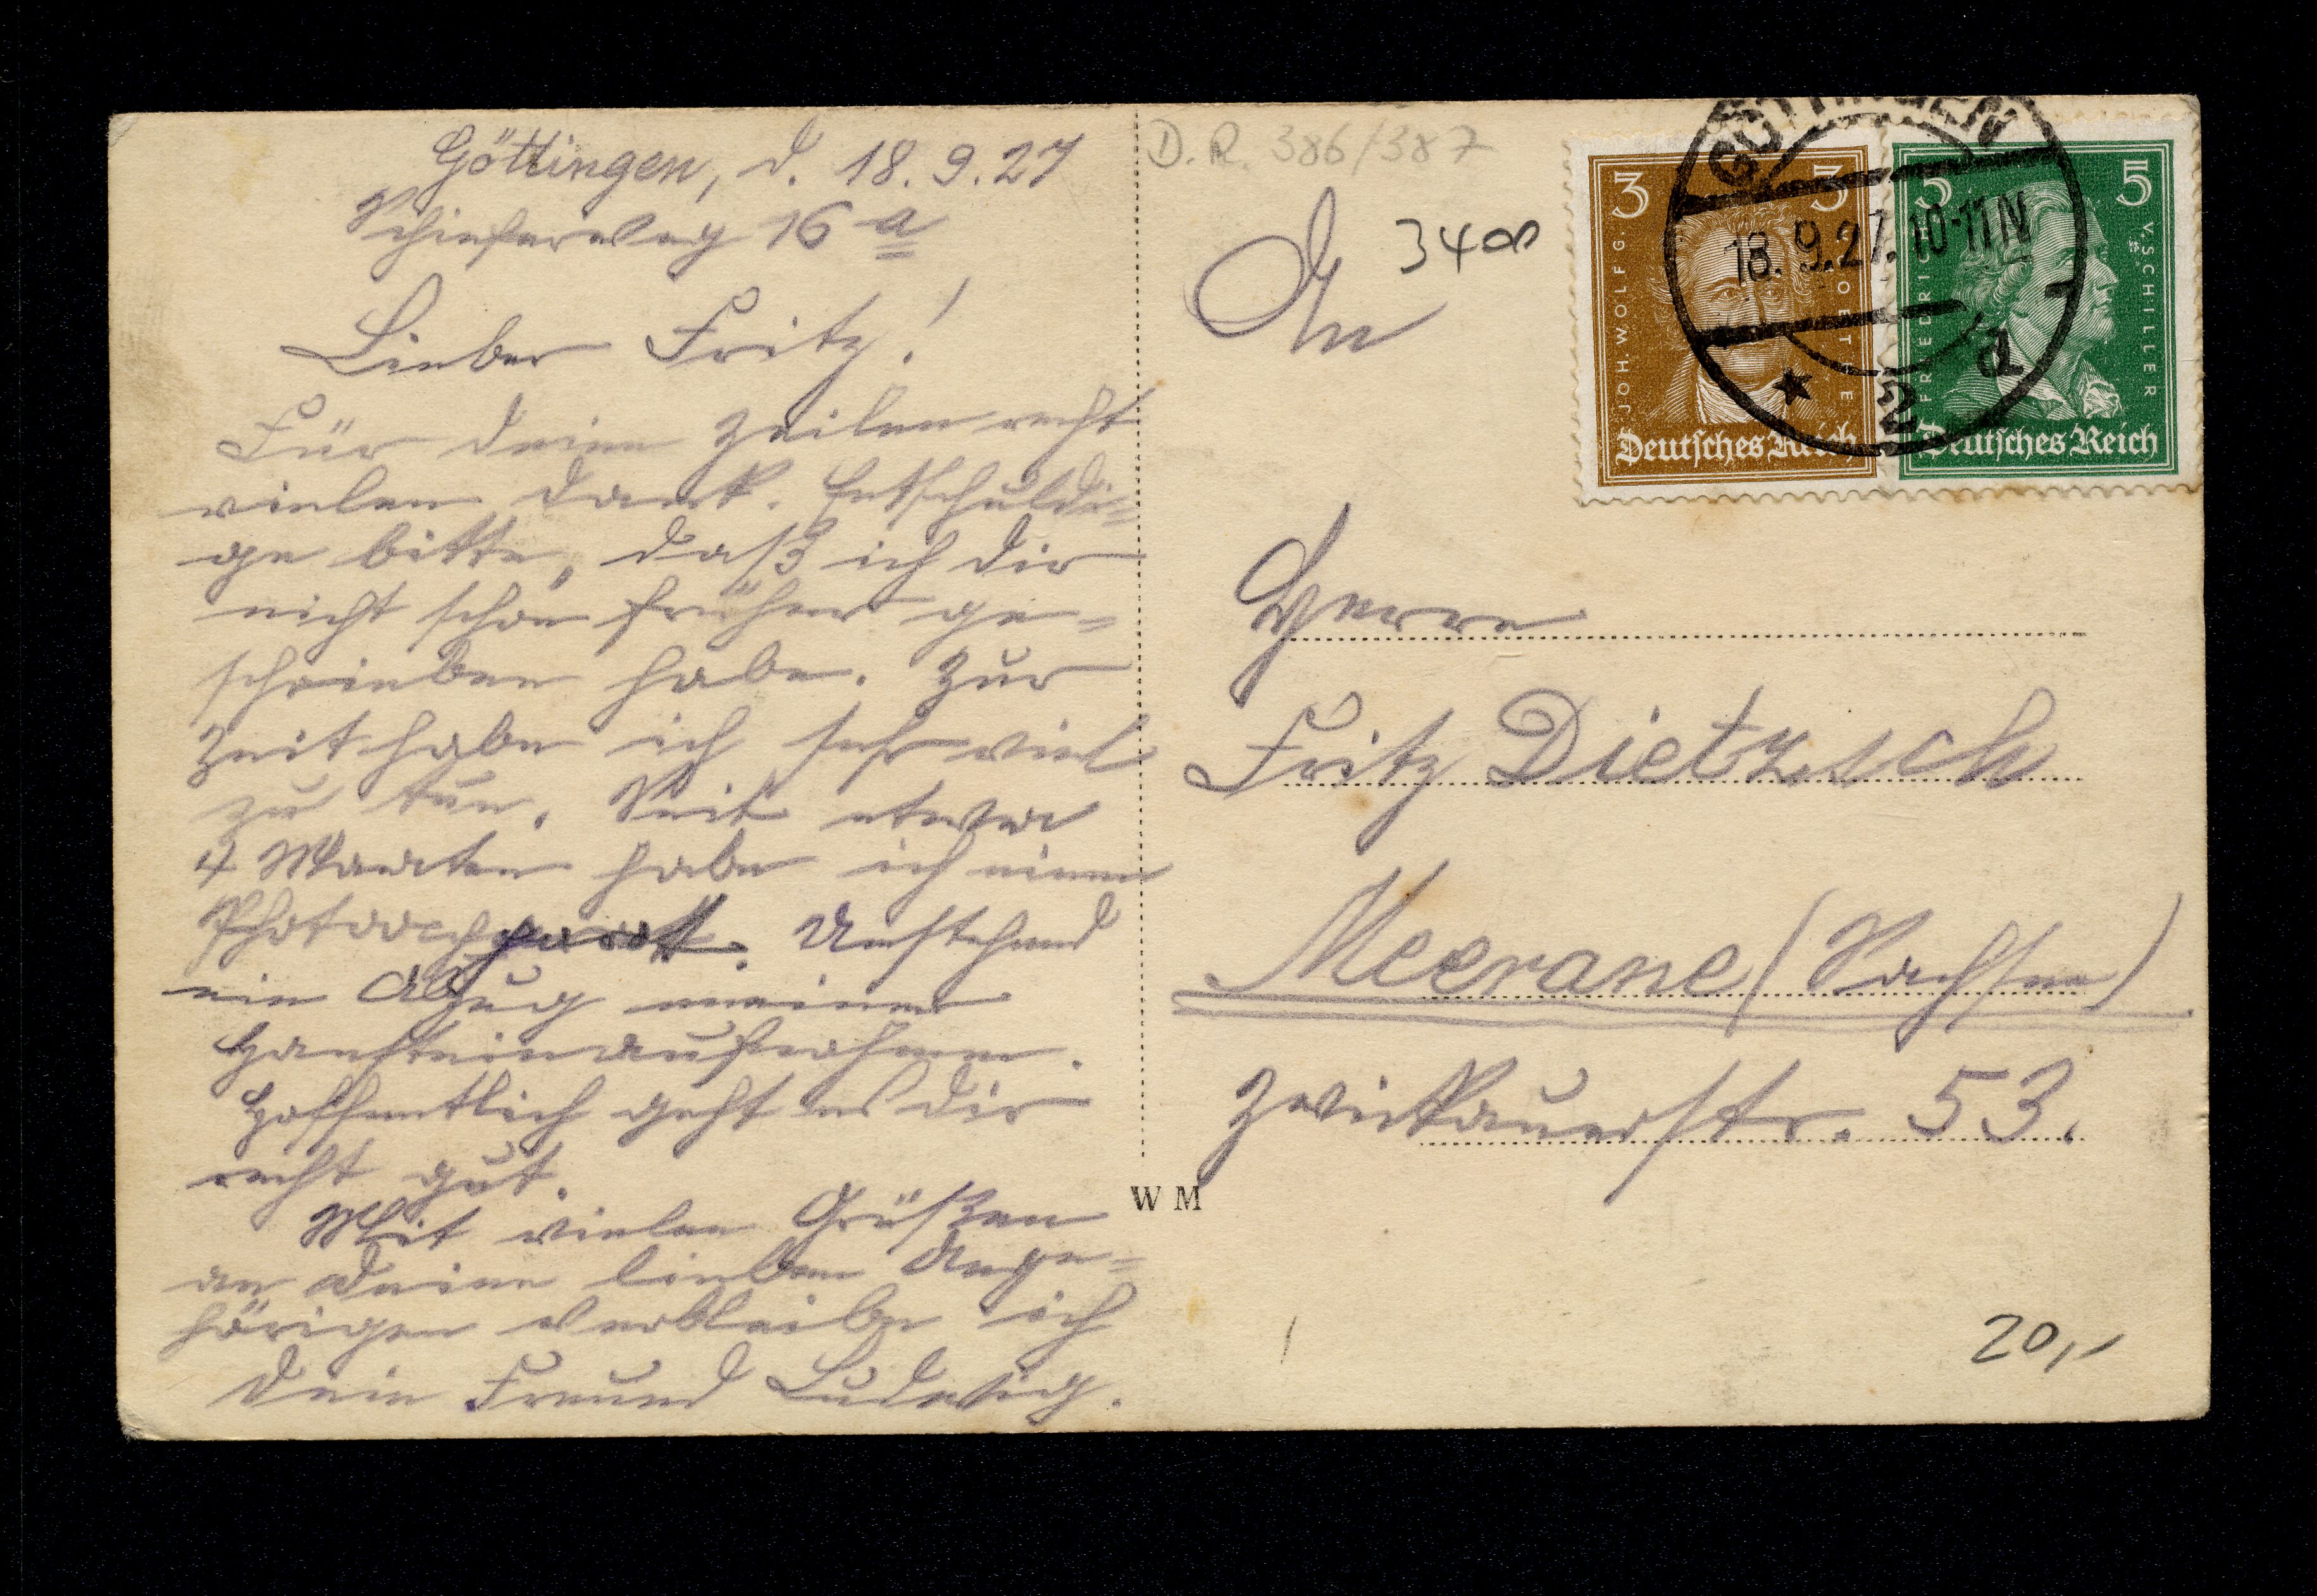 Göttingen, d. 18.9.27
Schieferweg 16 a
Lieber Fritz!
Für deine Zeilen recht
vielen Dank. Entschuldi=
ge bitte, daß ich dir
nicht schon früher ge=
schrieben habe. Zur
Zeit habe ich sehr viel
zu tun. Seit etwa
4 Monaten habe ich einen
Photoapparat. Umstehend
ein Abzug meiner
Hansteinaufnahmen.
Hoffentlich geht es dir
recht gut.
Mit vielen Grüßen
an Deine lieben Ange=
hörigen verbleibe ich
Dein Freund Ludwig.
D.R. 386/387
3400
An
Herrn
Fritz Dietzsch
Meerane (Sachsen)
Zwickauerstr. 53.
W M
20,-
3 3
JOH. WOLFG. V. GOETHE
Deutsches Reich
5 5
FRIEDRICH V. SCHILLER
Deutsches Reich
GÖTTINGEN
18.9.27. 10-11 N
* 2 d